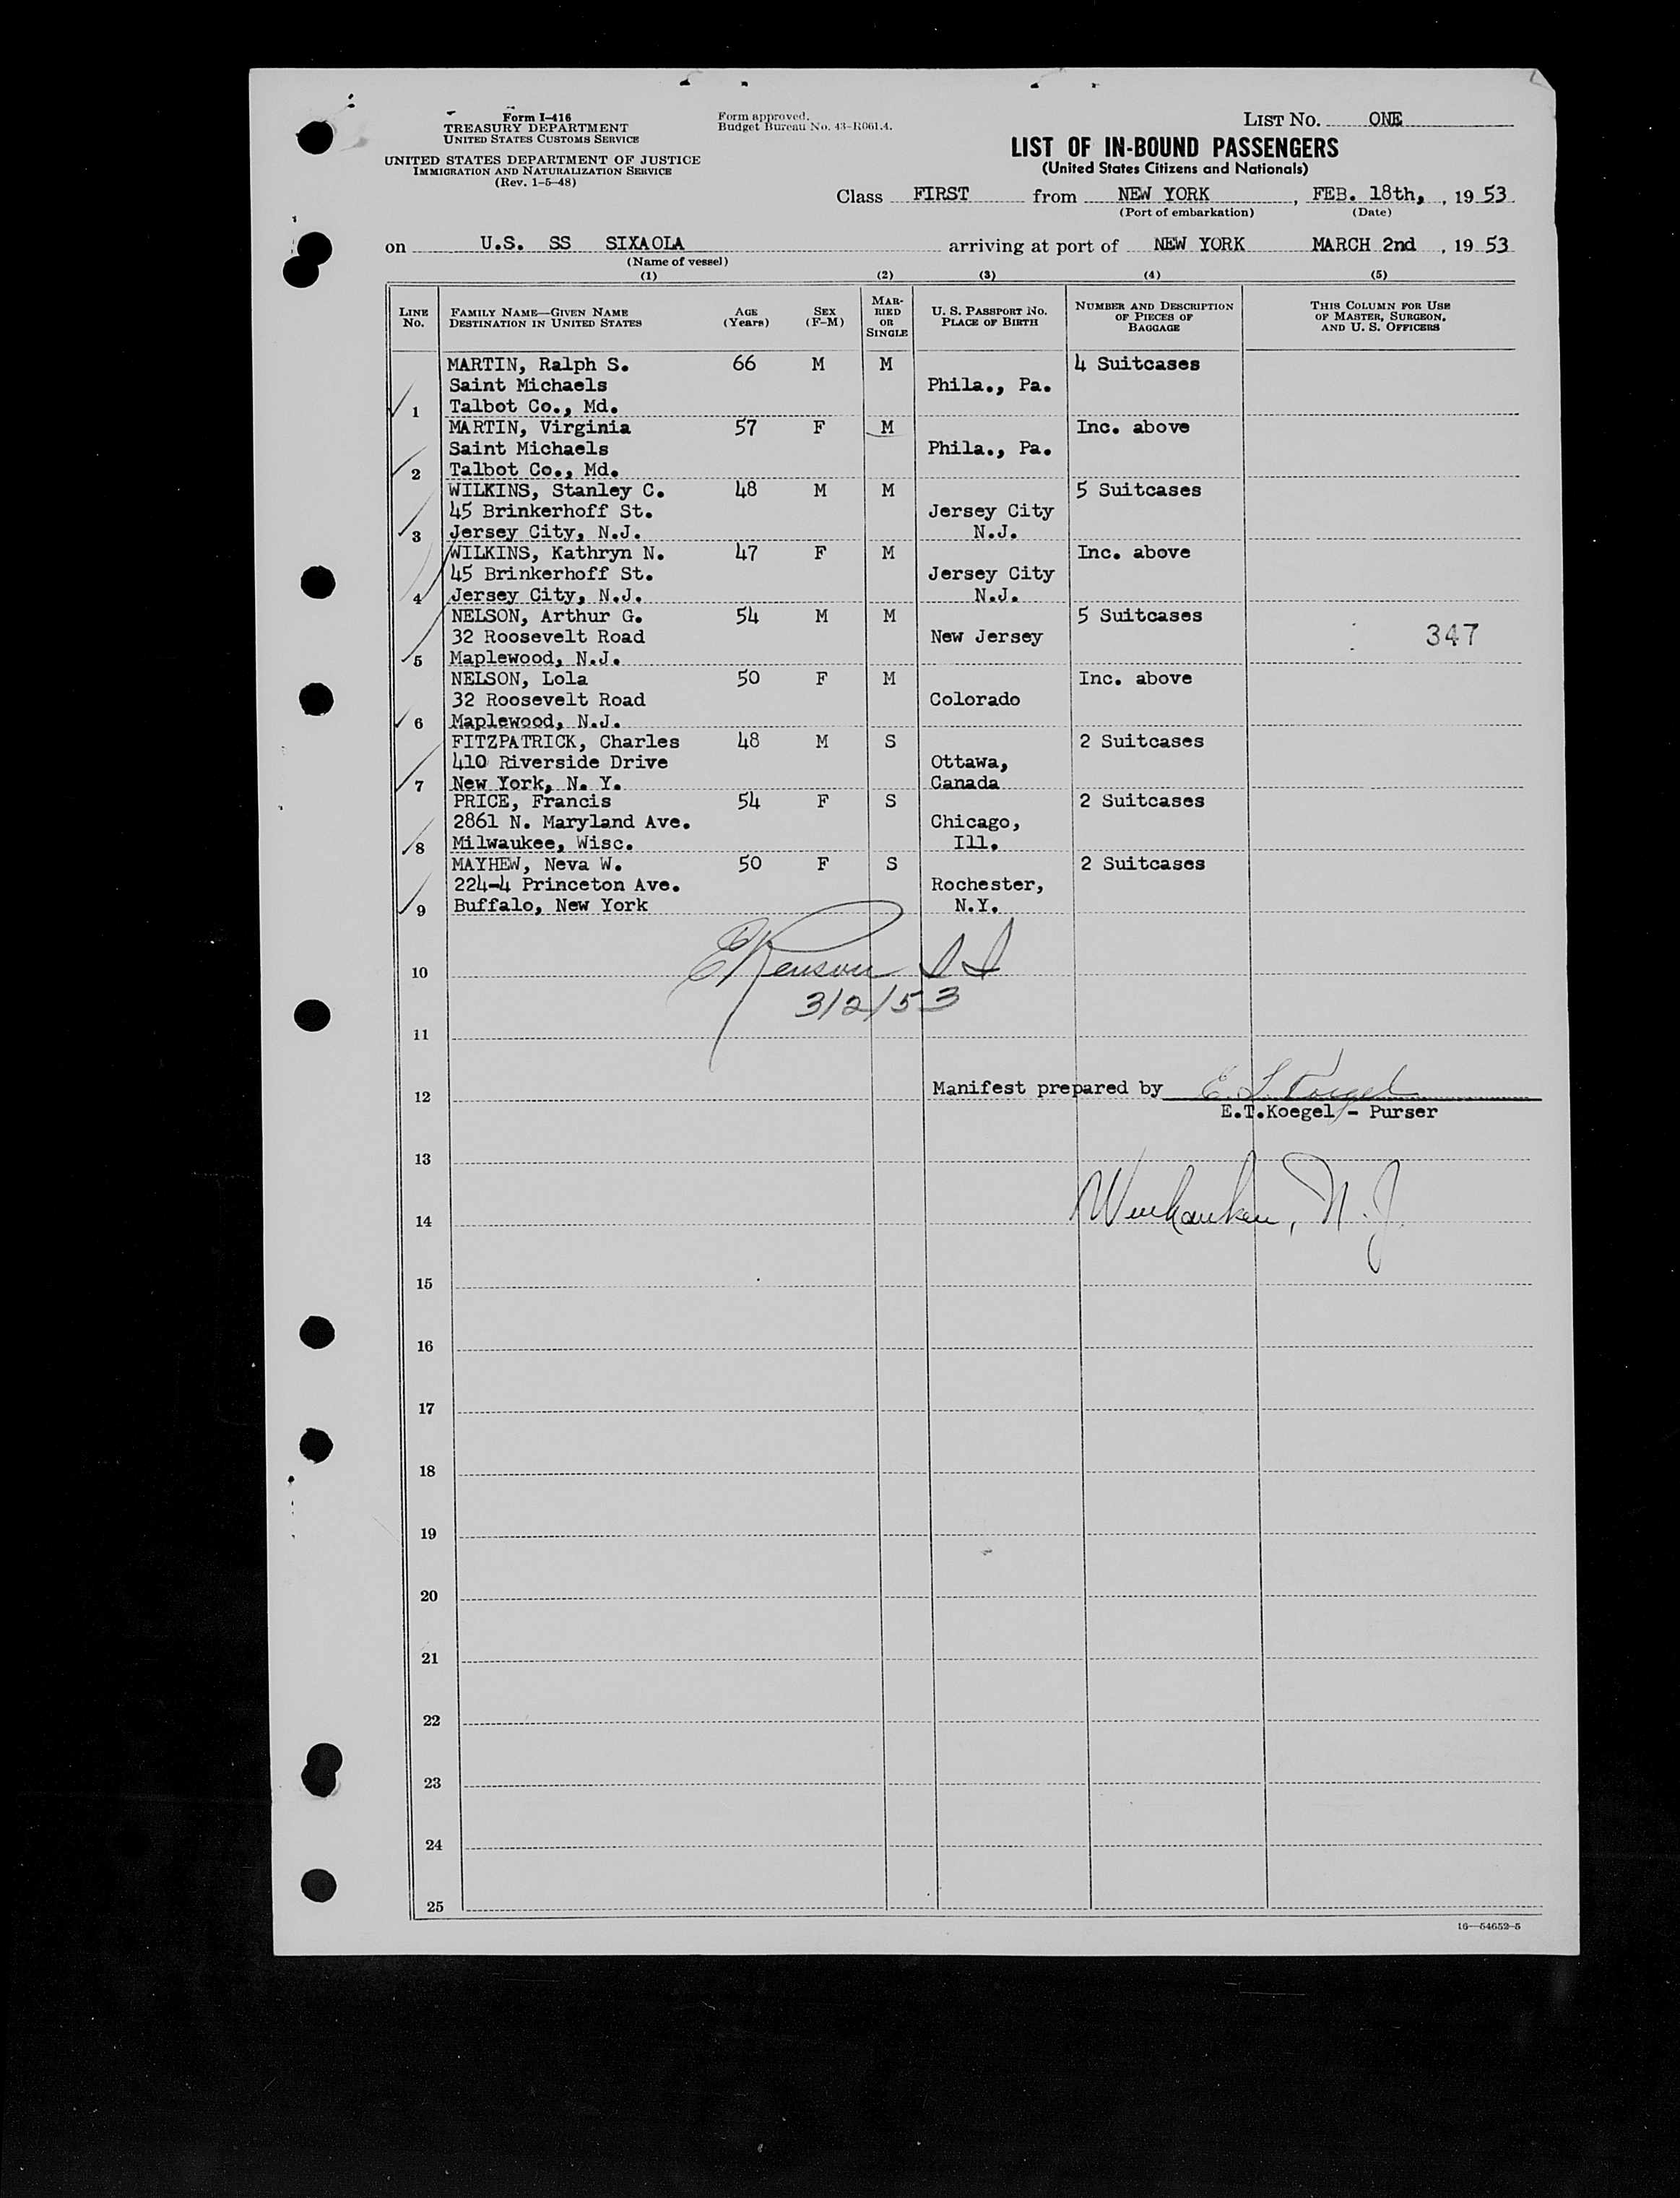 Form I-416
TREASURY DEPARTMENT
UNITED STATES CUSTOMS SERVICE
UNITED STATES DEPARTMENT OF JUSTICE
IMMIGRATION AND NATURALIZATION SERVICE
(Rev. 1-5-48)
Form approved.
Budget Bureau No. 43-R061.4.
LIST No. ONE
LIST OF IN-BOUND PASSENGERS
(United States Citizens and Nationals)
Class FIRST from NEW YORK, FEB. 18th, , 19 53
(Port of embarkation) (Date)
on U.S. SS SIXAOLA arriving at port of NEW YORK MARCH 2nd , 19 53
(Name of vessel)
(1) (2) (3) (4) (5)
LINE No. FAMILY NAME—GIVEN NAME DESTINATION IN UNITED STATES AGE (Years) SEX (F-M) MARRIED OR SINGLE U. S. PASSPORT No. PLACE OF BIRTH NUMBER AND DESCRIPTION OF PIECES OF BAGGAGE THIS COLUMN FOR USE OF MASTER, SURGEON, AND U. S. OFFICERS
MARTIN, Ralph S. 66 M M 4 Suitcases
Saint Michaels Phila., Pa.
1 Talbot Co., Md.
MARTIN, Virginia 57 F M Inc. above
Saint Michaels Phila., Pa.
2 Talbot Co., Md.
WILKINS, Stanley C. 48 M M 5 Suitcases
45 Brinkerhoff St. Jersey City
3 Jersey City, N.J. N.J.
WILKINS, Kathryn N. 47 F M Inc. above
45 Brinkerhoff St. Jersey City
4 Jersey City, N.J. N.J.
NELSON, Arthur G. 54 M M 5 Suitcases
32 Roosevelt Road New Jersey 347
5 Maplewood, N.J.
NELSON, Lola 50 F M Inc. above
32 Roosevelt Road Colorado
6 Maplewood, N.J.
FITZPATRICK, Charles 48 M S 2 Suitcases
410 Riverside Drive Ottawa,
7 New York, N. Y. Canada
PRICE, Francis 54 F S 2 Suitcases
2861 N. Maryland Ave. Chicago,
8 Milwaukee, Wisc. Ill.
MAYHEW, Neva W. 50 F S 2 Suitcases
224-4 Princeton Ave. Rochester,
9 Buffalo, New York N.Y.
10
3/2/53
11
12 Manifest prepared by E. T. Koegel
E.T.Koegel - Purser
13
14 Weehawken, N.J.
15
16
17
18
19
20
21
22
23
24
25
16—54652-5